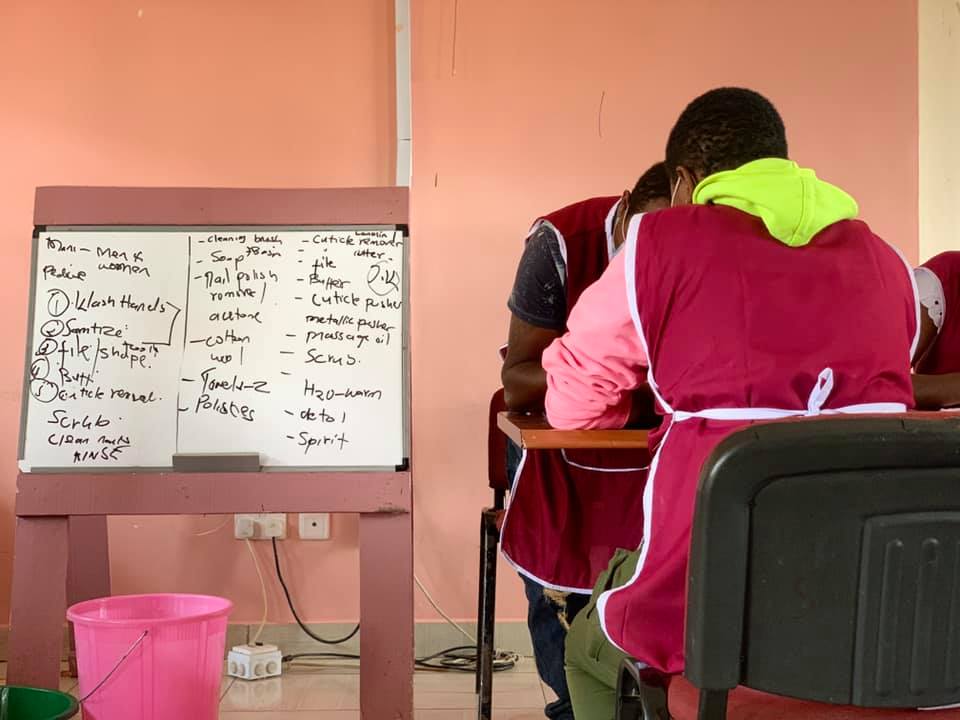 Mani - Men &
women
Pedicure
① Wash Hands
② Sanitize:
③ file/shape.
④ Buff
⑤ Cuticle removal.
Scrub.
Clean nails
RINSE
- cleaning brush
- Soap + Basin
- Nail polish
remover /
acetone
- cotton
wool
- Towels - 2
- Polishes
- Cuticle remover
cutter
- file
- Buffer
- Cuticle pusher
metallic pusher
- massage oil
- Scrub.
-
H20-warm
- detol
- Spirit